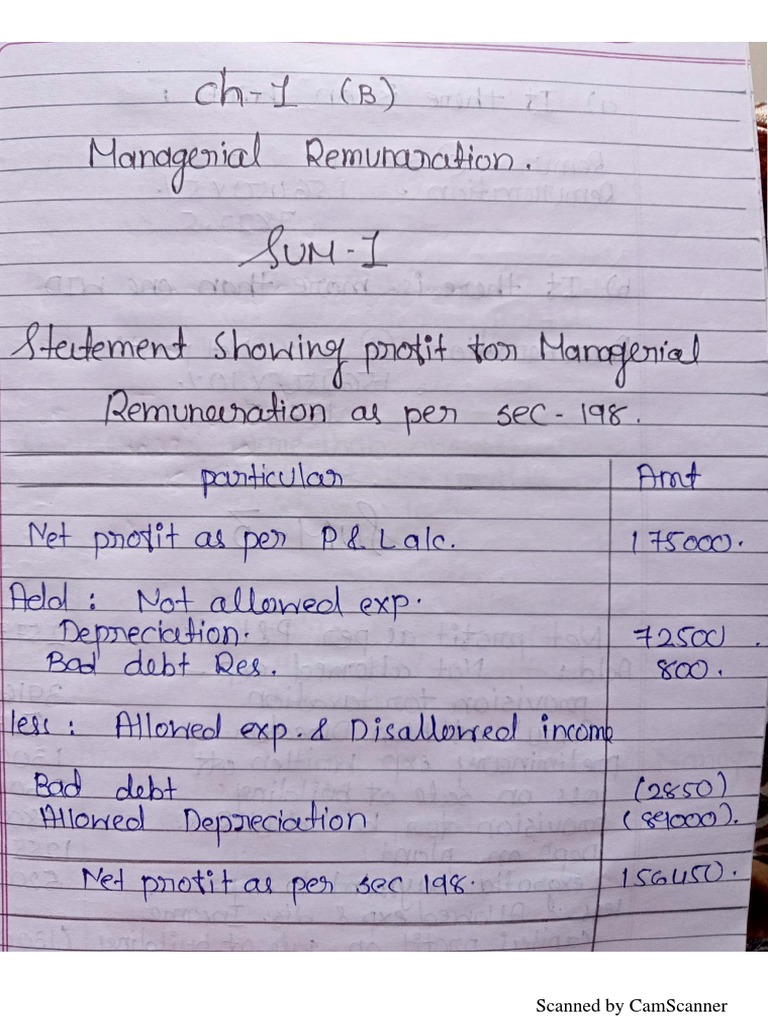 Ch-1 (B)
Managerial Remunaration.
SUM-1
Statement Showing profit for Managerial
Remuneration as per sec-198.
particular Amt
Net profit as per P & L a/c. 175000.
Add : Not allowed exp.
Depreciation. 72500.
Bad debt Res. 800.
less : Allowed exp. & Disallowed income
Bad debt (2850)
Allowed Depreciation (89000).
Net profit as per sec 198. 156450.
Scanned by CamScanner